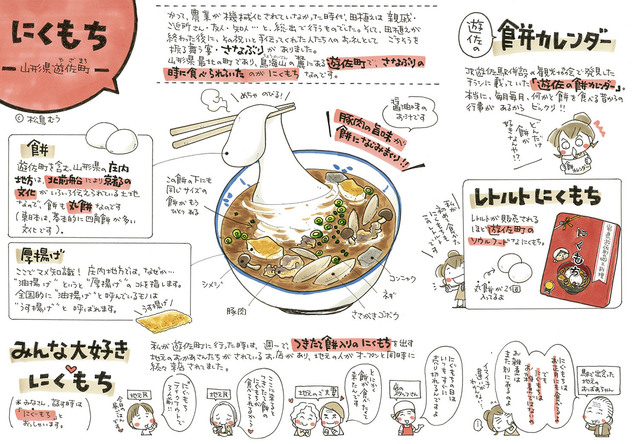 にくもち
山形県遊佐町
ゆざまち
© 松鳥むう
かつて、農業が機械化されていなかった時代、田植えは親戚・
ご近所さん・友人・知人…と、総出で行うものでした。そして、田植えが
終わった後に、その祝いと手伝ってくれた人たちへのお礼として ごちそうを
振る舞う宴・さなぶりがありました。
山形県最北の町であり、鳥海山の麓にある遊佐町で、さなぶりの
時に食べられていたのがにくもちなのです。
遊佐の
餅カレンダー
JR遊佐駅併設の観光協会で発見した
チラシに載っていた「遊佐の餅カレンダー」。
本当に、毎月毎月、何かと餅を食べる昔からの
行事があるからビックリ!!
どんだけ
餅
好きなん!?
餅
カレンダー
めちゃのびる!
醤油味の
おつゆです
豚肉の旨味が
餅になじみまくり!!
餅
遊佐町を含む、山形県の庄内
地方は、北前船により京都の
文化がいろいろ伝えられている土地
なので、餅も丸餅なのです
(東日本は、基本的に四角餅が多い
文化です)。
この餅の下にも
同じサイズの
餅がもう
ひとつある
厚揚げ
ここでマメ知識! 庄内地方では、なぜか…
"油揚げ"というと"厚揚げ"のコトを指します。
全国的に"油揚げ"と呼んでいるモノは
"うす揚げ"と呼ばれます。
うす揚げ!
シメジ
豚肉
コンニャク
ネギ
ささがきゴボウ
レトルトにくもち
レトルトが販売される
ほど遊佐町の
ソウルフードなにくもち。
丸餅が2個
入ってるよ
にくもち
みんな大好き
にくもち
*みなさん、話す時は
"にくもぢ"と
おっしゃいます。
私が遊佐町に行った時は、週一で、つきたて餅入りのにくもちを出す
地元のおかあさんたちがされているお店があり、地元の人がオープンと同時に
続々来店されました。
地元民
地元民
地元のご夫妻
とにもかくにも
餅が食べたくて
来たんです
店の
スタッフさん
にくもちの日は
いつもすぐに
売り切れるんですよ
お正月にも食べるよ
お雑煮は
にくもちではなく
お雑煮で
別にあるの
駅で出会った
地元の
おばあちゃん